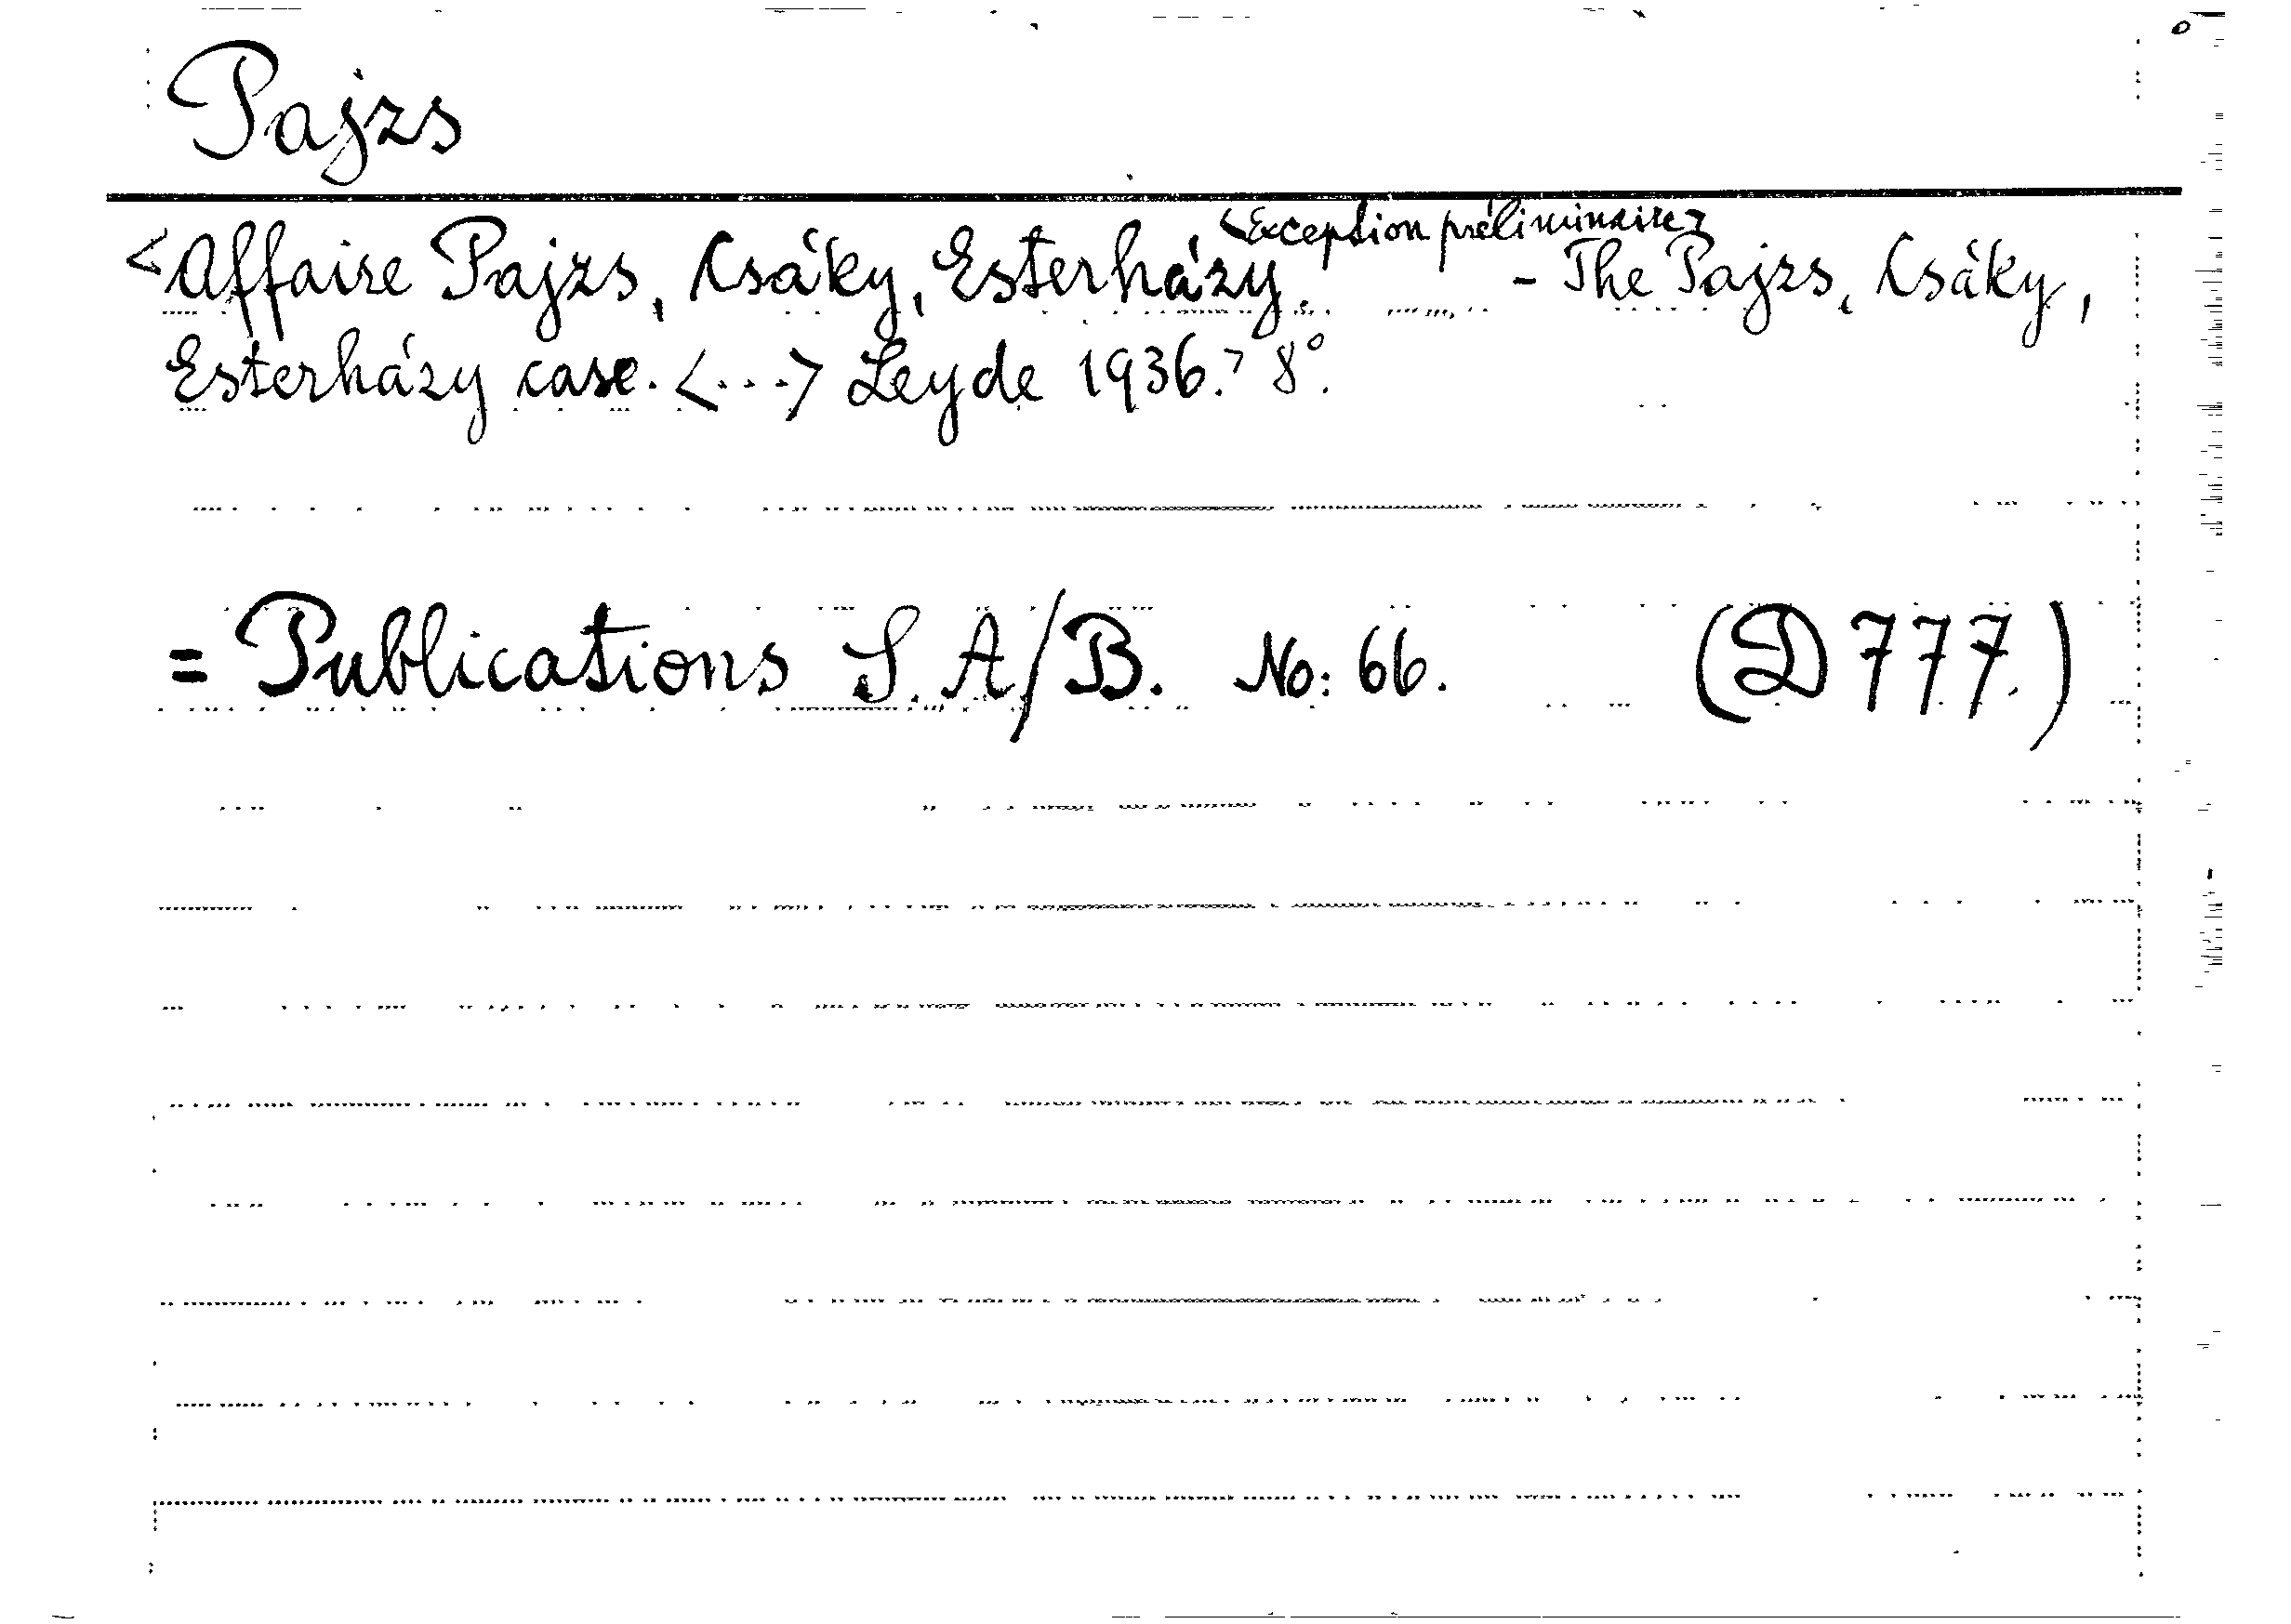 Pajzs
<Affaire Pajzs, Csáky, Esterházy. <Exception préliminaire> - The Pajzs, Csáky,
Esterházy case. <...> Leyde 1936.> 8°.
= Publications S. A/B. No: 66. (D 777.)